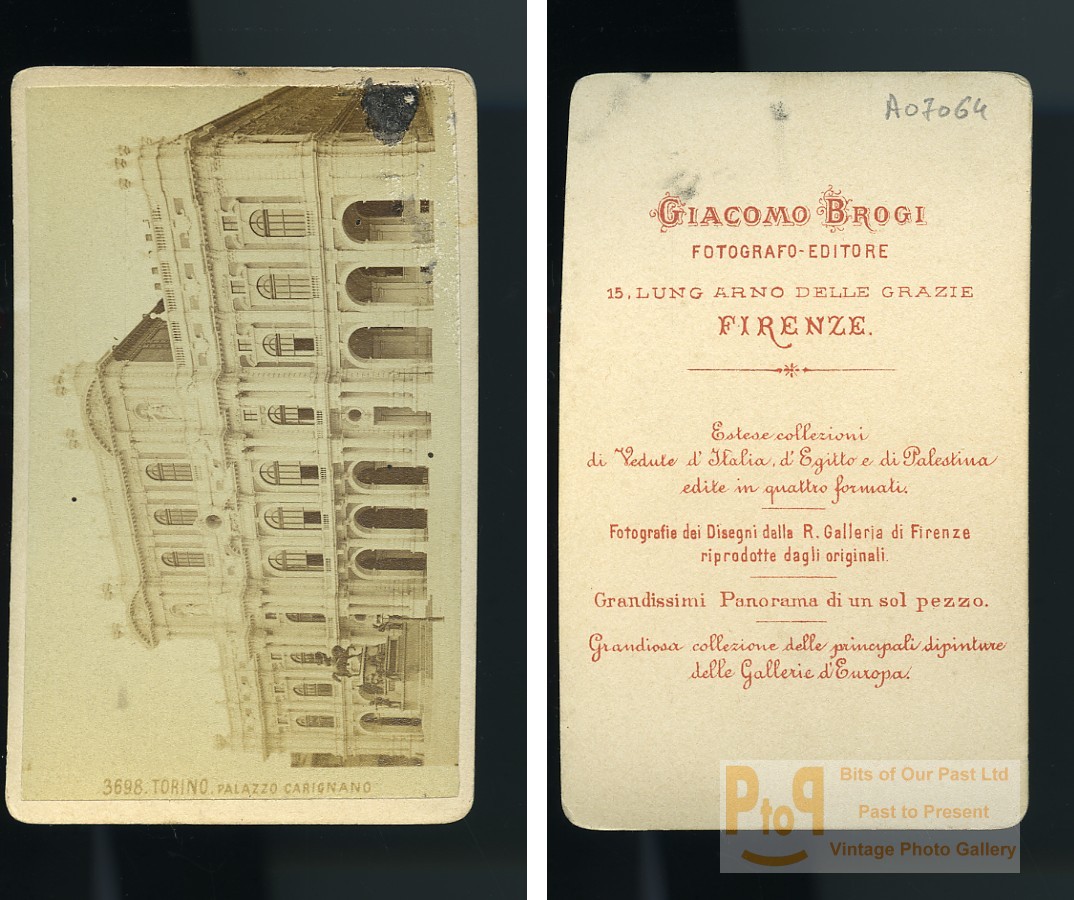 3698. TORINO. PALAZZO CARIGNANO
A07064
GIACOMO BROGI
FOTOGRAFO-EDITORE
15, LUNG ARNO DELLE GRAZIE
FIRENZE.
Estese collezioni
di Vedute d'Italia, d'Egitto e di Palestina
edite in quattro formati.
Fotografie dei Disegni della R. Galleria di Firenze
riprodotte dagli originali.
Grandissimi Panorama di un sol pezzo.
Grandiosa collezione delle principali dipinture
delle Gallerie d'Europa.
PtoP
Bits of Our Past Ltd
Past to Present
Vintage Photo Gallery